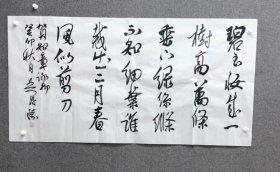 碧玉妝成一
樹高萬條
垂下綠絲絛
不知細葉誰
裁出二月春
風似剪刀
賀知章詠柳
癸卯秋月